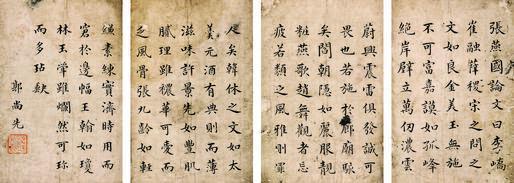 張燕國論文曰李嶠
崔融薛稷宋之問之
文如良金美玉無施
不可富嘉謨如孤峰
絕岸壁立萬仞濃雲
蔚興震雷俱發誠可
畏也若施於廊廟駭
矣閻朝隱如麗服靚
粧燕歌趙舞觀者忘
疲若類之風雅則罪
人矣韓休之文如太
羹元酒有典則而薄
滋味許景先如豐肌
膩理雖穠華可愛而
乏風骨張九齡如輕
縑素練實濟時用而
窘於邊幅王翰如瓊
林玉斝雖爛然可珍
而多玷缺
郭尚先